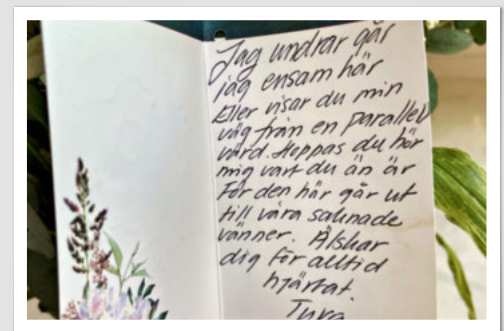 Jag undrar går
jag ensam här
Eller visar du min
väg från en parallell
värld. Hoppas du hör
mig vart du än är
För den här går ut
till våra saknade
vänner. Älskar
dig för alltid
hjärtat.